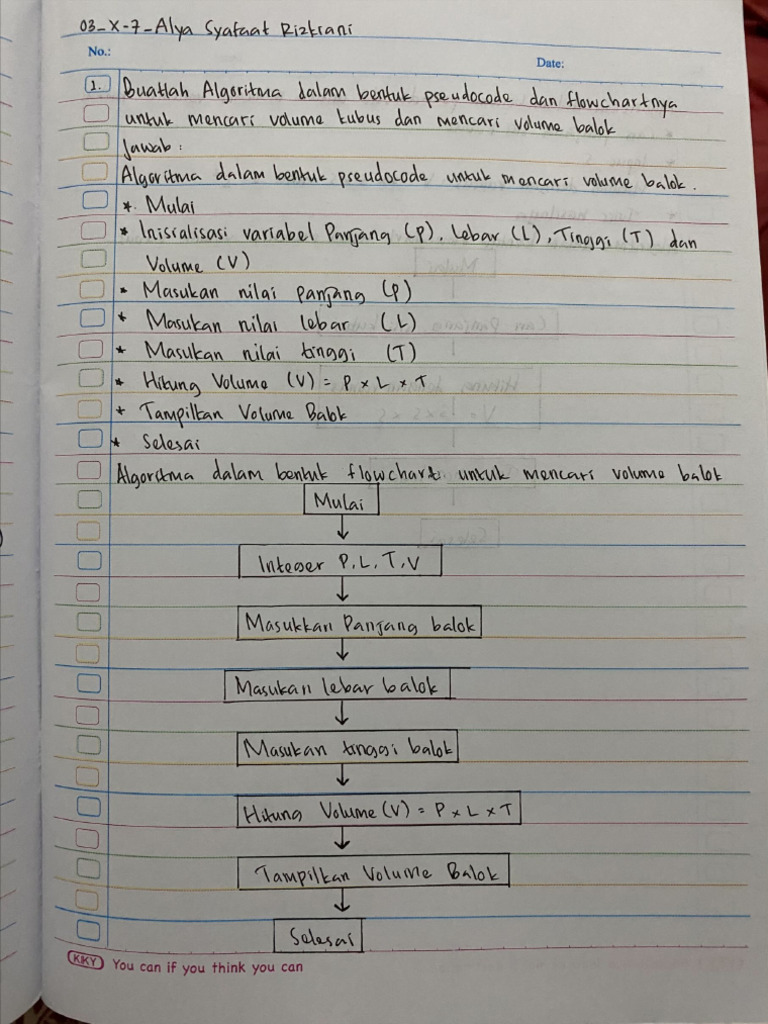 03_X-7_Alya Syafaat Rizkiani
No.:
Date:
1. Buatlah Algoritma dalam bentuk pseudocode dan flowchartnya
untuk mencari volume kubus dan mencari volume balok
Jawab :
Algoritma dalam bentuk pseudocode untuk mencari volume balok.
* Mulai
* Inisialisasi variabel Panjang (P), Lebar (L), Tinggi (T) dan
Volume (V)
* Masukan nilai panjang (P)
* Masukan nilai lebar (L)
* Masukan nilai tinggi (T)
* Hitung Volume (V) = P x L x T
* Tampilkan Volume Balok
* Selesai
Algoritma dalam bentuk flowchart untuk mencari volume balok
Mulai
Integer P, L, T, V
Masukkan Panjang balok
Masukan lebar balok
Masukan tinggi balok
Hitung Volume (V) = P x L x T
Tampilkan Volume Balok
Selesai
KIKY You can if you think you can